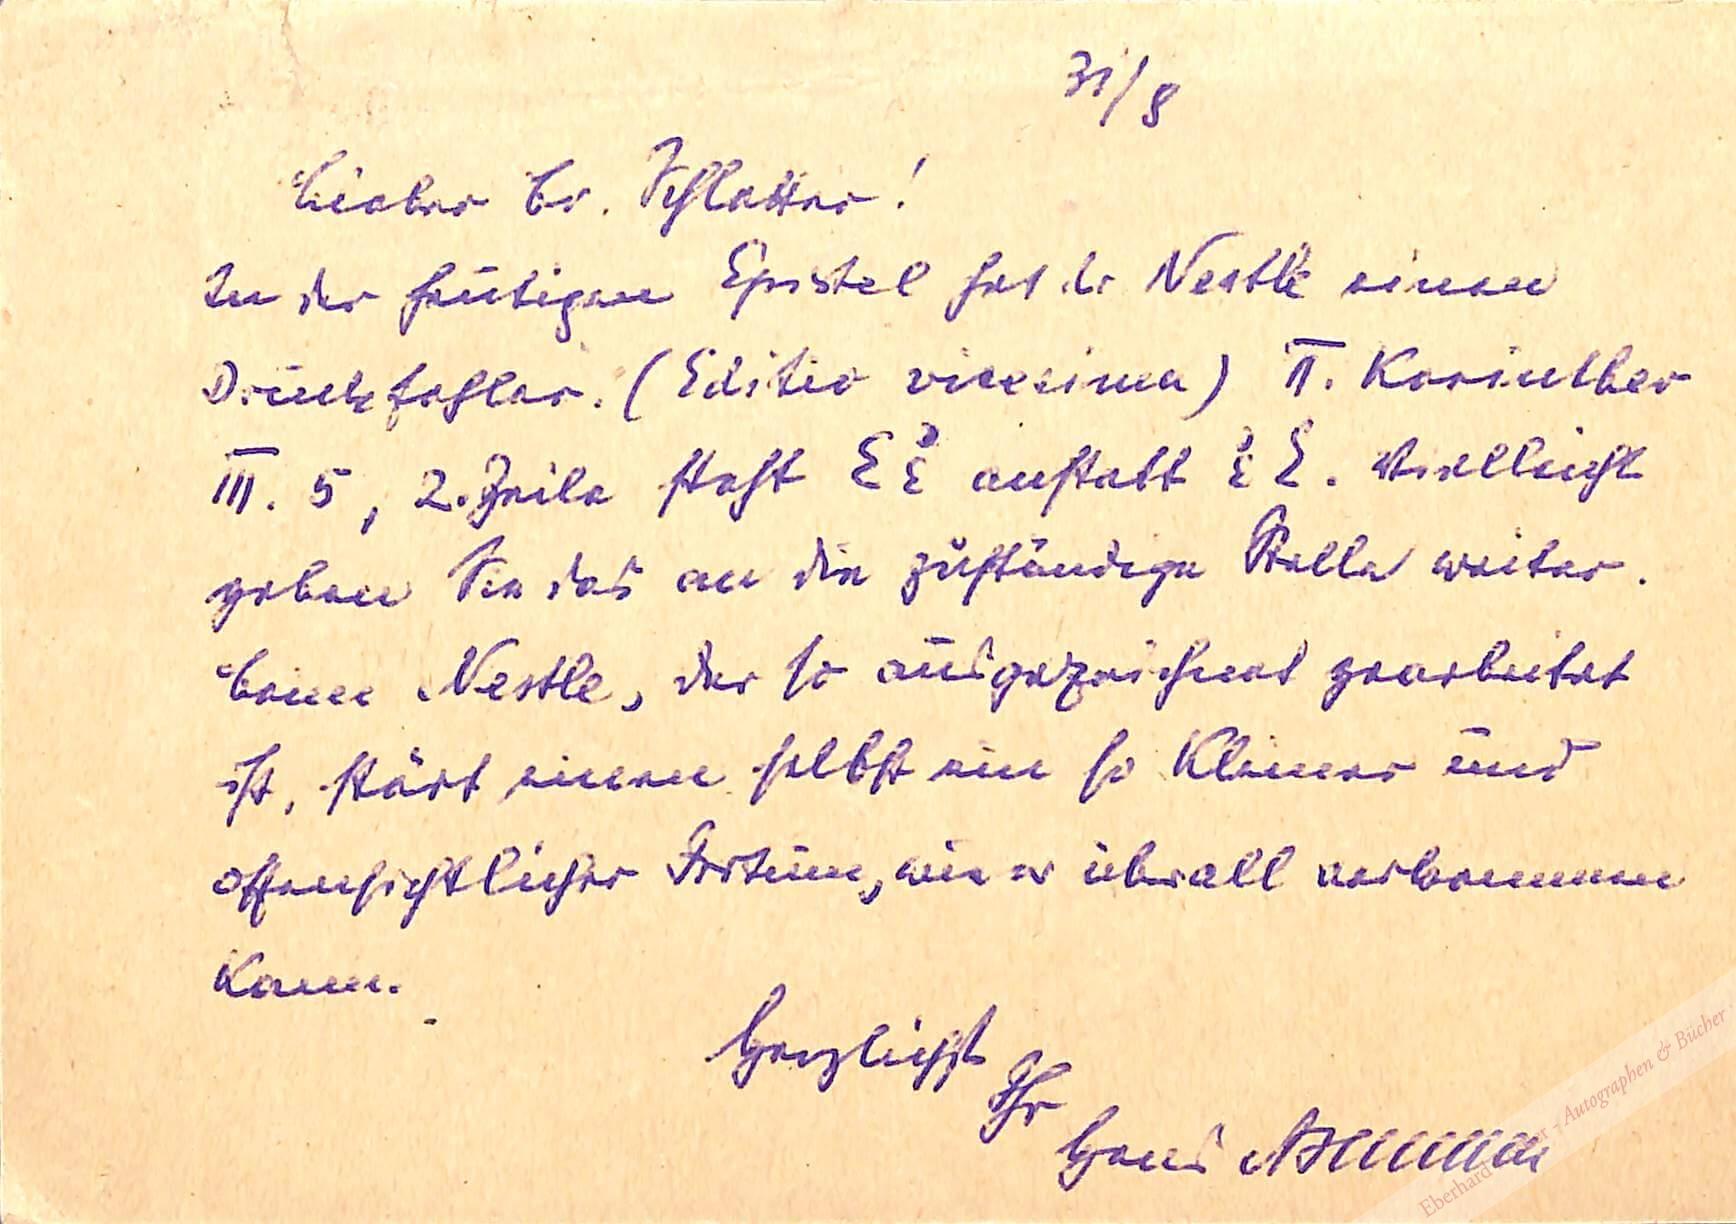 31/8
Lieber Br. Schlatter!
In der heutigen Epistel hat der Nestle einen
Druckfehler. (Editio vicesima) II. Korinther
III. 5, 2. Zeile steht ξἐ anstatt ἐξ. Vielleicht
geben Sie das an die zuständige Stelle weiter.
Beim Nestle, der so ausgezeichnet gearbeitet
ist, stört einen selbst ein so kleiner und
offensichtlicher Irrtum, wie er überall vorkommen
kann.
Herzlichst
Ihr
Hans
Eberhard - Autographen & Bücher